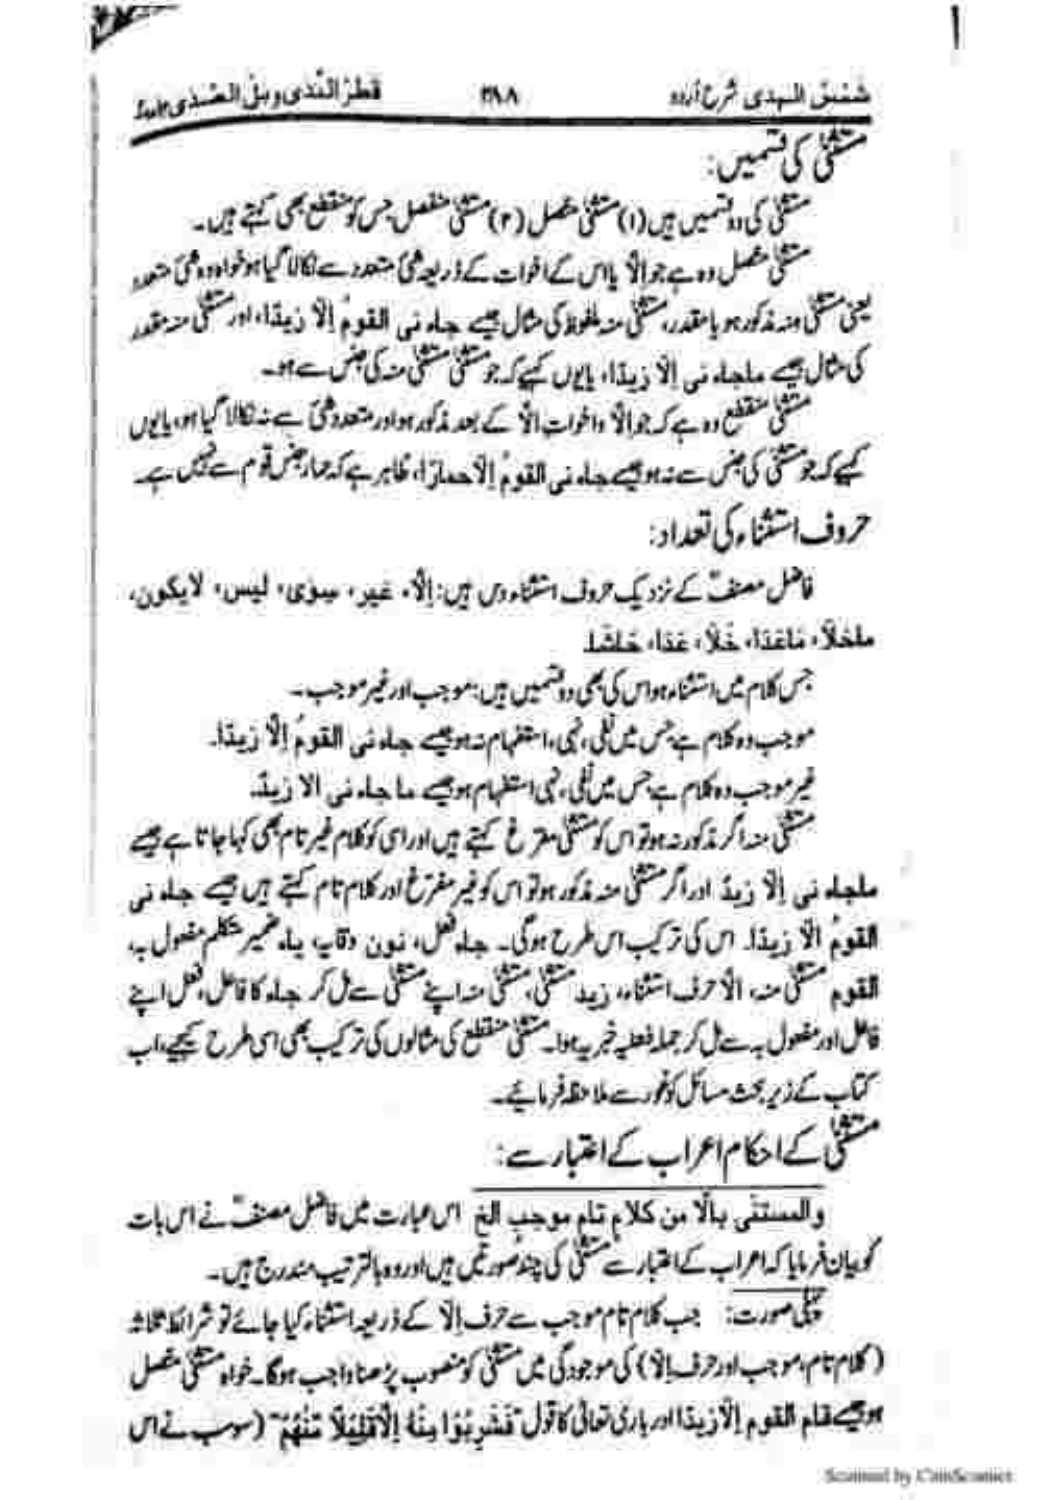 شمس الہدی شرح اردو ۳۸۸ قطر الندی وبل الصدی
مستثنیٰ کی قسمیں:
مستثنیٰ کی دو قسمیں ہیں (۱) مستثنیٰ متصل (۲) مستثنیٰ منفصل جس کو منقطع بھی کہتے ہیں۔
مستثنیٰ متصل وہ ہے جو اِلّا یا اس کے اخوات کے ذریعہ شئ متعدد سے نکالا گیا ہو خواہ وہ شئ متعدد
یعنی مستثنیٰ منہ مذکور ہو یا مقدر، مستثنیٰ منہ ملفوظ کی مثال جیسے جاء نی القومُ اِلّا زیدًا، اور مستثنیٰ منہ مقدر
کی مثال جیسے ماجاء نی اِلّا زیدًا، یا یوں کہیے کہ جو مستثنیٰ مستثنیٰ منہ کی جنس سے ہو۔
مستثنیٰ منقطع وہ ہے کہ جو اِلّا واخواتِ اِلّا کے بعد مذکور ہو اور متعدد شئ سے نہ نکالا گیا ہو، یا یوں
کہیے کہ جو مستثنیٰ کی جنس سے نہ ہو جیسے جاء نی القومُ اِلّا حمارًا، ظاہر ہے کہ حمار جنس قوم سے نہیں ہے۔
حروف استثناء کی تعداد:
فاضل مصنفؒ کے نزدیک حروف استثناء دس ہیں: اِلّا، غیر، سِوٰی، لیس، لایکون،
ماخلا، مَاعَدَا، خَلَا، عَدَا، حَاشَا۔
جس کلام میں استثناء ہو اس کی بھی دو قسمیں ہیں: موجب اور غیر موجب۔
موجب وہ کلام ہے جس میں نفی، نہی، استفہام نہ ہو جیسے جاء نی القومُ اِلّا زیدًا۔
غیر موجب وہ کلام ہے جس میں نفی، نہی استفہام ہو جیسے ما جاء نی الا زیدٌ۔
مستثنیٰ منہ اگر مذکور نہ ہو تو اس کو مستثنیٰ مفرغ کہتے ہیں اور اسی کو کلام غیر تام بھی کہا جاتا ہے جیسے
ماجاء نی اِلّا زیدٌ اور اگر مستثنیٰ منہ مذکور ہو تو اس کو غیر مفرّغ اور کلام تام کہتے ہیں جیسے جاء نی
القومُ الّا زیدًا۔ اس کی ترکیب اس طرح ہوگی۔ جاء فعل، نون وقایہ، یاء ضمیر متکلم مفعول بہ،
القوم مستثنیٰ منہ، الّا حرف استثناء، زید مستثنیٰ، مستثنیٰ منہ اپنے مستثنیٰ سے مل کر جاء کا فاعل، فعل اپنے
فاعل اور مفعول بہ سے مل کر جملہ فعلیہ خبریہ ہوا۔ مستثنیٰ منقطع کی مثالوں کی ترکیب بھی اسی طرح کیجیے، اب
کتاب کے زیر بحث مسائل کو غور سے ملاحظہ فرمائیے۔
مستثنیٰ کے احکام اعراب کے اعتبار سے:
والمستثنی بالّا من کلام تام موجب الخ اس عبارت میں فاضل مصنفؒ نے اس بات
کو بیان فرمایا کہ اعراب کے اعتبار سے مستثنیٰ کی چند صورتیں ہیں اور وہ بالترتیب مندرج ہیں۔
پہلی صورت: جب کلام تام موجب سے حرف اِلّا کے ذریعہ استثناء کیا جائے تو شرائط ثلاثہ
(کلام تام، موجب اور حرف اِلّا) کی موجودگی میں مستثنیٰ کو منصوب پڑھنا واجب ہوگا۔ خواہ مستثنیٰ متصل
ہو جیسے قام القوم اِلّا زیدًا اور باری تعالیٰ کا قول "فَشَرِبُوْا مِنْهُ اِلَّا قَلِیْلًا مِّنْهُمْ" (سو سب نے اس
Scanned by CamScanner